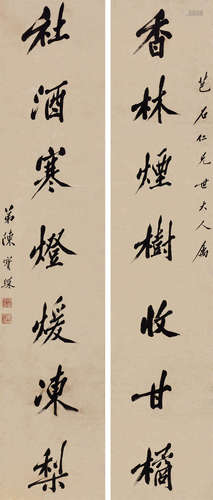 芝石仁兄世大人屬
香林煙樹收甘橘
社酒寒燈煖凍梨
弟陳寶琛